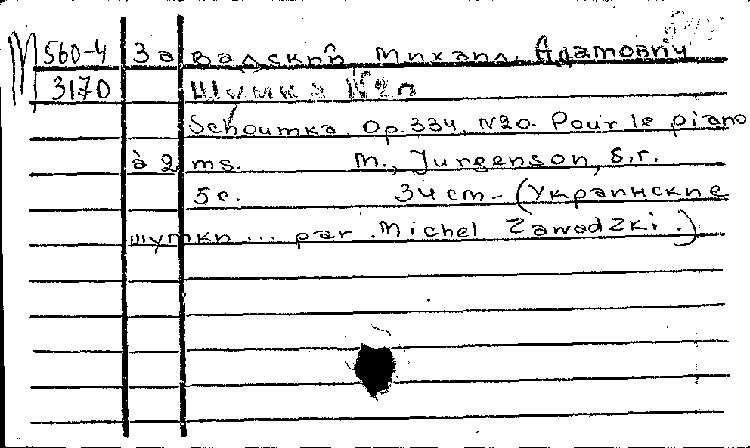 М 560-4 Завадский Михаил Адамович
3170 Шумка №20
Schoumka. Op. 334, №20. Pour le piano
à 2 ms. М., Jurgenson, s.г.
5 с. 34 cm. (Украинские
шутки... par Michel Zawadzki.)